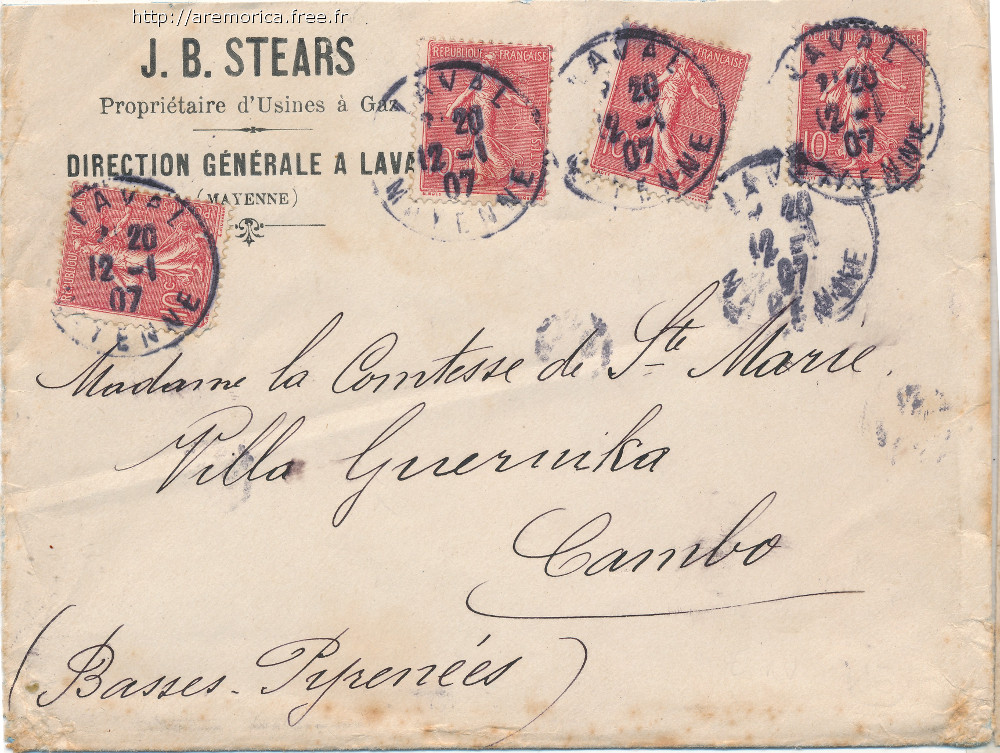 http://aremorica.free.fr
J. B. STEARS
Propriétaire d'Usines à Gaz
DIRECTION GÉNÉRALE A LAVA
(MAYENNE)
RÉPUBLIQUE FRANÇAISE
LAVAL
20
12 -1
07
MAYENNE
RÉPUBLIQUE FRANÇAISE
LAVAL
20
12 -1
07
MAYENNE
RÉPUBLIQUE FRANÇAISE
10c
LAVAL
20
12 -1
07
MAYENNE
10c
LAVAL
20
12 -1
07
MAYENNE
LAVAL
20
12 -1
07
Madame la Comtesse de Ste Marie.
Villa Guernika
Cambo
(Basses-Pyrenées)